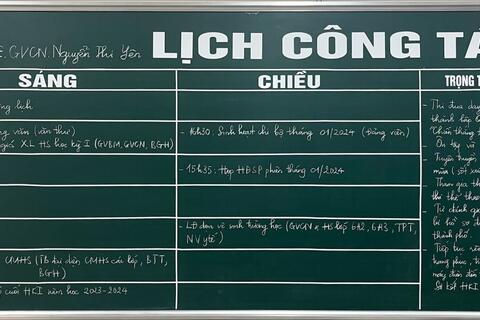 GVCN. Nguyễn Thị Yên
LỊCH CÔNG TÁ
SÁNG
CHIỀU
TRỌNG T
ng lịch
ng văn (văn thư)
XL HS học kỳ I (GVBM, GVCN, BGH)
- 16h30. Sinh hoạt chi bộ tháng 01/2024 (Đảng viên)
- 15h35. Họp HĐSP phiên tháng 01/2024
- LĐ dọn vệ sinh trường học (GVCN + HS lớp 6A2, 6A3, TPT,
NV y tế)
CMHS (TB đại diện CMHS các lớp, BTT,
BGH)
cuối HKI năm học 2023-2024
- Thi đua dạy
thành lập
Chiến thắng
- Ôn tập và
- Tuyên truyền
mùa (sốt
- Tham gia
thể thao
- Tư chính
hồ sơ
thành phố.
- Tiếp tục
trang phục,
máy điện
- Sơ kết HKI